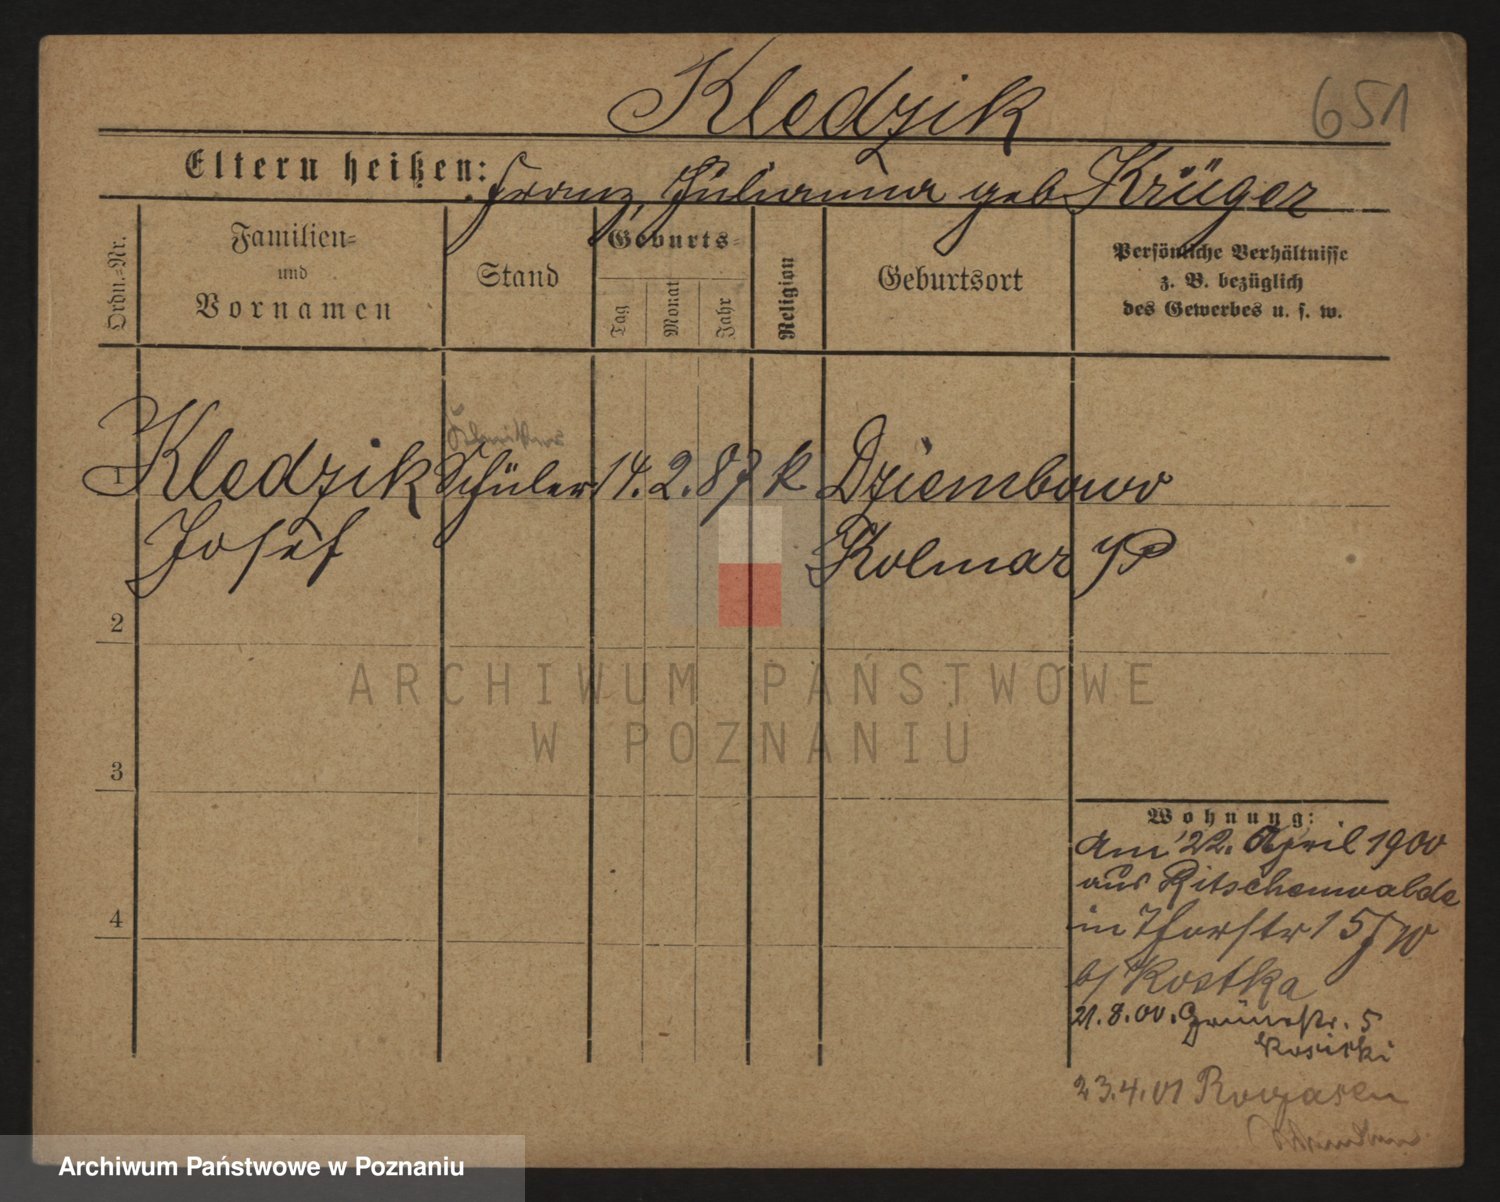 Kledzik
651
Eltern heißen: Franz, Julianna geb Krüger
Ordn.=Nr.
Familien=
und
Vornamen
Stand
Geburts=
Tag
Monat
Jahr
Religion
Geburtsort
Persönliche Verhältnisse
z. B. bezüglich
des Gewerbes u. s. w.
1 Kledzik Schüler 14. 2. 87 k Dziembowo
Josef Kolmar i/P
2
3
4
Wohnung:
Am 22. April 1900
aus Ritschenwalde
in Thorstr 15
b/ Kostka
21.8.00. Grünestr. 5
Kosicki
23.4.01 Rogasen
ARCHIWUM PAŃSTWOWE
W POZNANIU
Archiwum Państwowe w Poznaniu